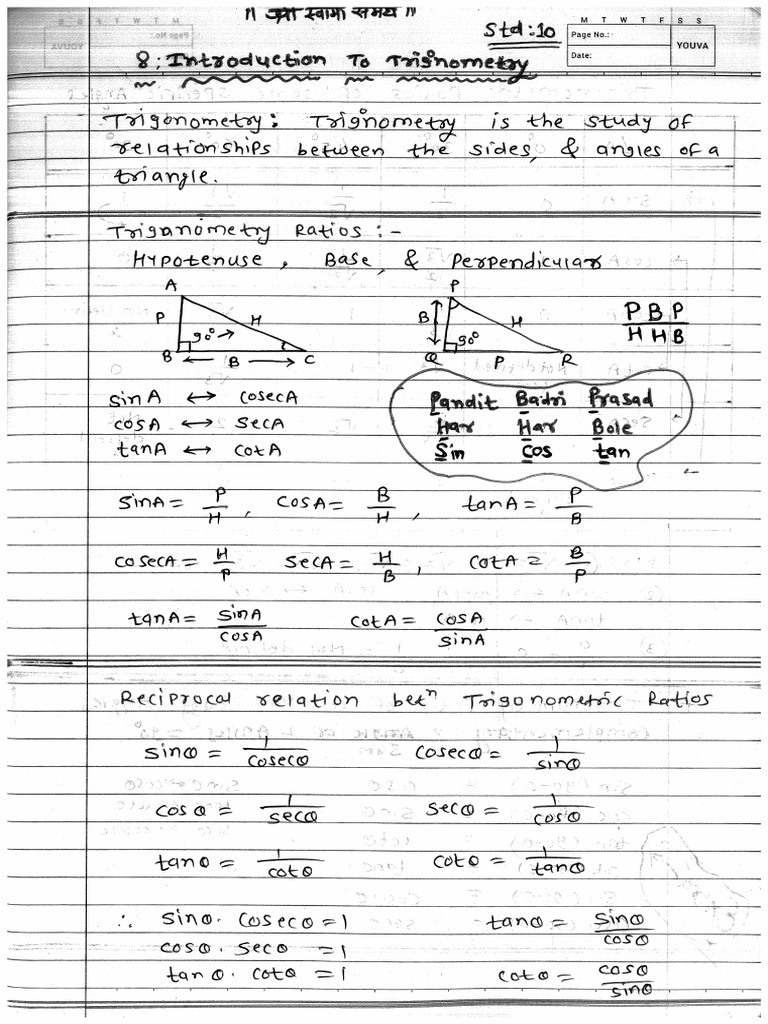 || श्री स्वामी समर्थ ||
Std:10
M T W T F S S
Page No.:
Date:
YOUVA
8: Introduction To Trignometry
Trigonometry: Trignometry is the study of
relationships between the sides, & angles of a
triangle.
Trigonometry Ratios :-
Hypotenuse, Base, & Perpendicular
A
P
H
90°
B
B
C
P
B
H
90°
Q
P
R
P B P
H H B
sinA ↔ cosecA
cosA ↔ secA
tanA ↔ cotA
Pandit Badri Prasad
Har Har Bole
Sin cos tan
SinA = P/H, CosA = B/H, tanA = P/B
cosecA = H/P secA = H/B, cotA = B/P
tanA = sinA/cosA cotA = cosA/sinA
Reciprocal relation betⁿ Trigonometric Ratios
sinθ = 1/cosecθ cosecθ = 1/sinθ
cosθ = 1/secθ secθ = 1/cosθ
tanθ = 1/cotθ cotθ = 1/tanθ
∴ sinθ · cosecθ = 1 tanθ = sinθ/cosθ
cosθ · secθ = 1
tanθ · cotθ = 1 cotθ = cosθ/sinθ